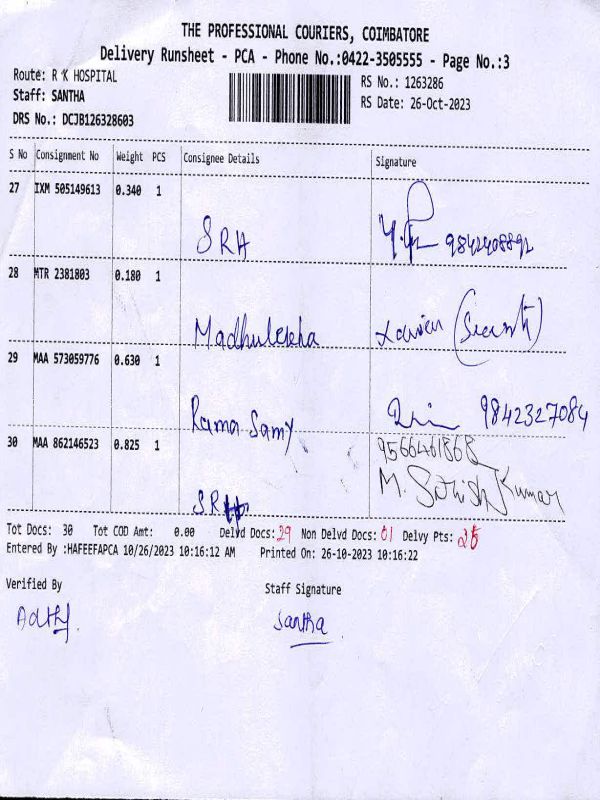 THE PROFESSIONAL COURIERS, COIMBATORE
Delivery Runsheet - PCA - Phone No.:0422-3505555 - Page No.:3
Route: R K HOSPITAL
RS No.: 1263286
Staff: SANTHA
RS Date: 26-Oct-2023
DRS No.: DCJB126328603
S No Consignment No Weight PCS Consignee Details Signature
27 IXM 505149613 0.340 1
SRH 9842408892
28 MTR 2381803 0.180 1
Madhulekha
29 MAA 573059776 0.630 1
Rama Samy 9842327084
30 MAA 862146523 0.825 1 9566461868
SRH M. Sathish Kumar
Tot Docs: 30 Tot COD Amt: 0.00 Delvd Docs: 29 Non Delvd Docs: 01 Delvy Pts:
Entered By :HAFEEFAPCA 10/26/2023 10:16:12 AM Printed On: 26-10-2023 10:16:22
Verified By Staff Signature
Santha